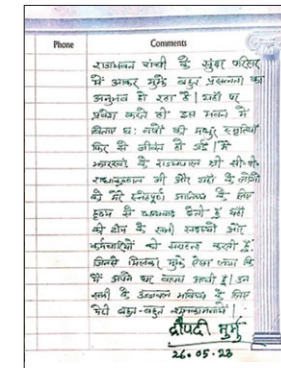 Phone Comments
राजभवन रांची के सुंदर परिसर
में आकर मुझे बहुत प्रसन्नता का
अनुभव हो रहा है। यहाँ पर
प्रवेश करते ही इस भवन में
बिताए छः वर्षों की मधुर स्मृतियाँ
फिर से जीवंत हो गई। मैं
झारखण्ड के राज्यपाल श्री सी.पी.
राधाकृष्णन जी और यहाँ के लोगों
को मेरे स्नेहपूर्ण आतिथ्य के लिए
हृदय से धन्यवाद देती हूँ। यहाँ
की टीम के सभी सदस्यों और
कर्मचारियों की सराहना करती हूँ
जिनसे मिलकर मुझे ऐसा लगा कि
मैं अपने घर वापस आयी हूँ। उन
सभी के उज्जवल भविष्य के लिए
मेरी बहुत-बहुत शुभकामनायें।
द्रौपदी मुर्मु
26.05.23